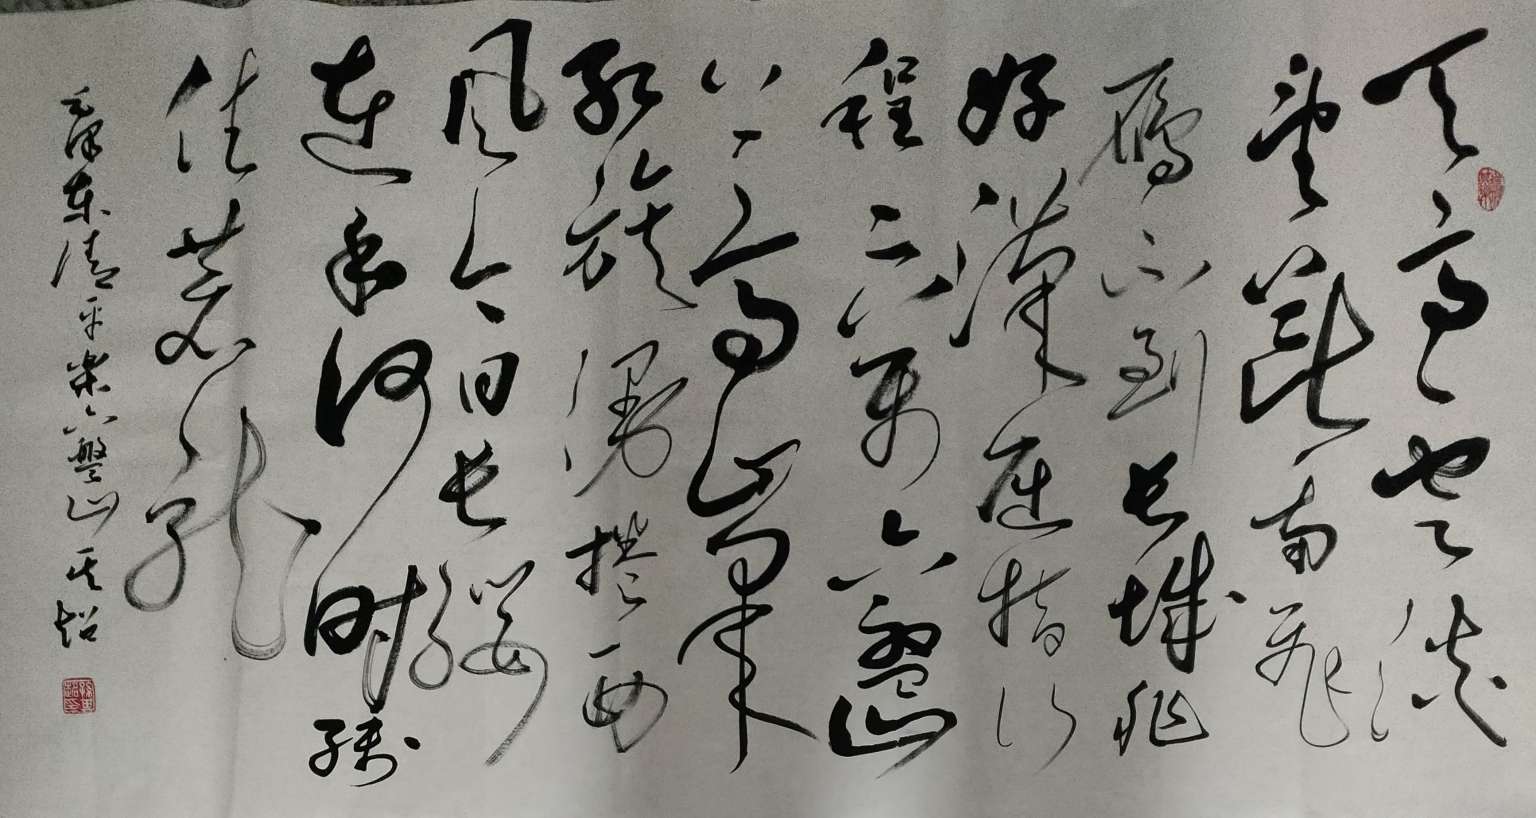 天高云淡
望断南飛
雁不到长城非
好漢屈指行
程二萬六盘山
上高峯
红旗漫捲西
风今日长缨
在手何时缚
住苍龙
毛泽东清平乐六盘山 其超